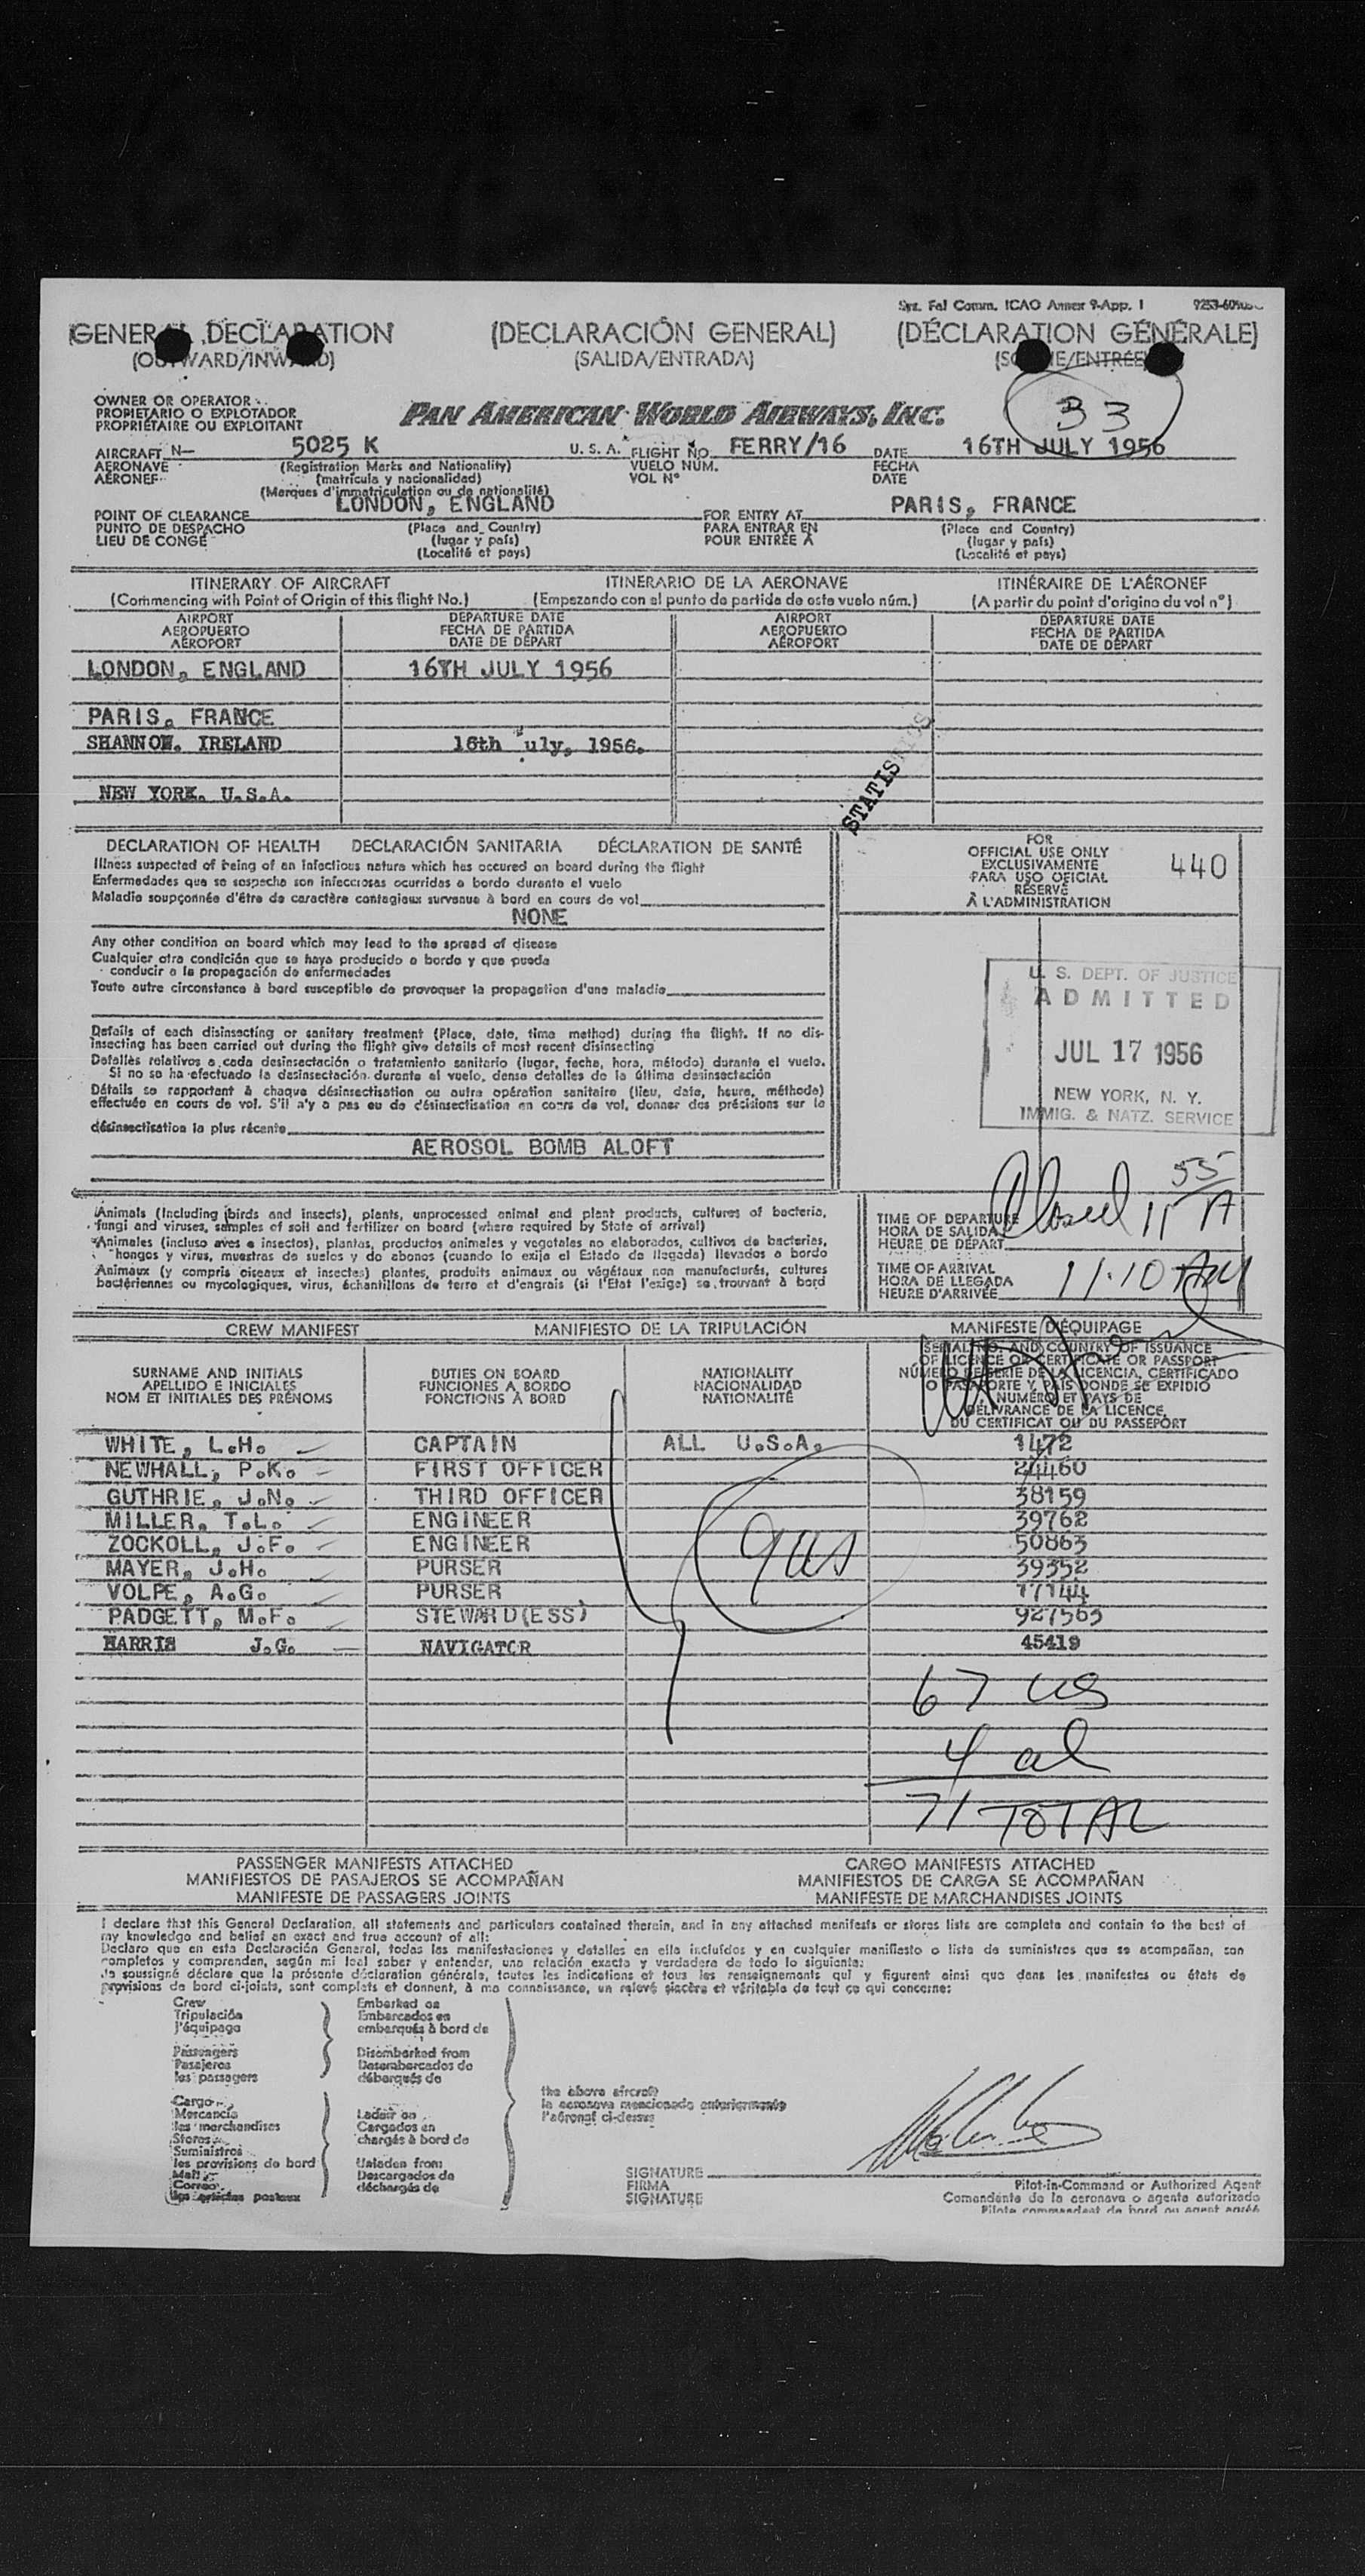 Sys. Fal Comm. ICAO Annex 9-App. I
GENERAL DECLARATION (DECLARACIÓN GENERAL) (DÉCLARATION GÉNÉRALE)
(OUTWARD/INWARD) (SALIDA/ENTRADA) (SORTIE/ENTRÉE)
33
OWNER OR OPERATOR
PROPIETARIO O EXPLOTADOR
PROPRIÉTAIRE OU EXPLOITANT
PAN AMERICAN WORLD AIRWAYS, INC.
AIRCRAFT N- 5025 K U. S. A. FLIGHT NO. FERRY/16 DATE 16TH JULY 1956
AERONAVE (Registration Marks and Nationality) VUELO NÚM. FECHA
AÉRONEF (matrícula y nacionalidad) VOL N° DATE
(Marques d'immatriculation ou de nationalité)
POINT OF CLEARANCE LONDON, ENGLAND FOR ENTRY AT PARIS, FRANCE
PUNTO DE DESPACHO (Place and Country) PARA ENTRAR EN (Place and Country)
LIEU DE CONGÉ (lugar y país) POUR ENTRÉE À (lugar y país)
(Localité et pays) (Localité et pays)
ITINERARY OF AIRCRAFT ITINERARIO DE LA AERONAVE ITINÉRAIRE DE L'AÉRONEF
(Commencing with Point of Origin of this flight No.) (Empezando con el punto de partida de este vuelo núm.) (A partir du point d'origine du vol n°)
AIRPORT DEPARTURE DATE AIRPORT DEPARTURE DATE
AEROPUERTO FECHA DE PARTIDA AEROPUERTO FECHA DE PARTIDA
AÉROPORT DATE DE DÉPART AÉROPORT DATE DE DÉPART
LONDON, ENGLAND 16TH JULY 1956
PARIS, FRANCE
SHANNON. IRELAND 16th uly, 1956.
NEW YORK. U.S.A.
STATISTICS
DECLARATION OF HEALTH DECLARACIÓN SANITARIA DÉCLARATION DE SANTÉ
Illness suspected of being of an infectious nature which has occured on board during the flight
Enfermedades que se sospecha son infecciosas ocurridas a bordo durante el vuelo
Maladie soupçonnée d'être de caractère contagieux survenue à bord en cours de vol
NONE
Any other condition on board which may lead to the spread of disease
Cualquier otra condición que se haya producido a bordo y que pueda
conducir a la propagación de enfermedades
Toute autre circonstance à bord susceptible de provoquer la propagation d'une maladie
Details of each disinsecting or sanitary treatment (Place, date, time method) during the flight. If no dis-
insecting has been carried out during the flight give details of most recent disinsecting
Detalles relativos a cada desinsectación o tratamiento sanitario (lugar, fecha, hora, método) durante el vuelo.
Si no se ha efectuado la desinsectación durante el vuelo, dense detalles de la última desinsectación
Détails se rapportant à chaque désinsectisation ou autre opération sanitaire (lieu, date, heure, méthode)
effectuée en cours de vol. S'il n'y a pas eu de désinsectisation en cours de vol, donner des précisions sur la
désinsectisation la plus récente
AEROSOL BOMB ALOFT
FOR
OFFICIAL USE ONLY
EXCLUSIVAMENTE
PARA USO OFICIAL
RÉSERVÉ
À L'ADMINISTRATION
440
U. S. DEPT. OF JUSTICE
ADMITTED
JUL 17 1956
NEW YORK, N. Y.
IMMIG. & NATZ. SERVICE
Animals (Including birds and insects), plants, unprocessed animal and plant products, cultures of bacteria,
fungi and viruses, samples of soil and fertilizer on board (where required by State of arrival)
Animales (incluso aves e insectos), plantas, productos animales y vegetales no elaborados, cultivos de bacterias,
hongos y virus, muestras de suelos y de abonos (cuando lo exija el Estado de llegada) llevados a bordo
Animaux (y compris oiseaux et insectes) plantes, produits animaux ou végétaux non manufacturés, cultures
bactériennes ou mycologiques, virus, échantillons de terre et d'engrais (si l'Etat l'exige) se trouvant à bord
TIME OF DEPARTURE
HORA DE SALIDA
HEURE DE DÉPART
Closed 11 55 A
TIME OF ARRIVAL
HORA DE LLEGADA
HEURE D'ARRIVÉE
11.10 AM
CREW MANIFEST MANIFIESTO DE LA TRIPULACIÓN MANIFESTE D'ÉQUIPAGE
SURNAME AND INITIALS
APELLIDO E INICIALES
NOM ET INITIALES DES PRÉNOMS
DUTIES ON BOARD
FUNCIONES A BORDO
FONCTIONS À BORD
NATIONALITY
NACIONALIDAD
NATIONALITÉ
SERIAL NO. AND COUNTRY OF ISSUANCE
OF LICENCE OR CERTIFICATE OR PASSPORT
NÚMERO DE SERIE DE LA LICENCIA, CERTIFICADO
O PASAPORTE Y PAÍS DONDE SE EXPIDIÓ
NUMÉRO ET PAYS DE
DÉLIVRANCE DE LA LICENCE,
DU CERTIFICAT OU DU PASSEPORT
WHITE, L.H. CAPTAIN ALL U.S.A. 1472
NEWHALL, P.K. FIRST OFFICER 24460
GUTHRIE, J.N. THIRD OFFICER 38159
MILLER, T.L. ENGINEER 39762
ZOCKOLL, J.F. ENGINEER 50863
MAYER, J.H. PURSER 39352
VOLPE, A.G. PURSER 77144
PADGETT, M.F. STEWARD(ESS) 927563
HARRIS J.G. NAVIGATOR 45419
9us
67 us
4 al
71 TOTAL
PASSENGER MANIFESTS ATTACHED CARGO MANIFESTS ATTACHED
MANIFIESTOS DE PASAJEROS SE ACOMPAÑAN MANIFIESTOS DE CARGA SE ACOMPAÑAN
MANIFESTE DE PASSAGERS JOINTS MANIFESTE DE MARCHANDISES JOINTS
I declare that this General Declaration, all statements and particulars contained therein, and in any attached manifests or stores lists are complete and contain to the best of
my knowledge and belief an exact and true account of all:
Declaro que en esta Declaración General, todas las manifestaciones y detalles en ella incluídos y en cualquier manifiesto o lista de suministros que se acompañan, son
completos y comprenden, según mi leal saber y entender, una relación exacta y verdadera de todo lo siguiente:
Je soussigné déclare que la présente déclaration générale, toutes les indications et tous les renseignements qui y figurent ainsi que dans les manifestes ou états de
provisions de bord ci-joints, sont complets et donnent, à ma connaissance, un relevé sincère et véritable de tout ce qui concerne:
Crew Embarked on
Tripulación Embarcados en
l'équipage embarqués à bord de
Passengers Disembarked from
Pasajeros Desembarcados de
les passagers débarqués de
Cargo
Mercancía Laden on
les marchandises Cargados en
Stores chargés à bord de
Suministros
les provisions de bord Unladen from
Mail Descargados de
Correo déchargés de
les articles postaux
the above aircraft
la aeronave mencionada anteriormente
l'aéronef ci-dessus
SIGNATURE
FIRMA
SIGNATURE
Pilot-in-Command or Authorized Agent
Comandante de la aeronave o agente autorizado
Pilote commandant de bord ou agent agréé